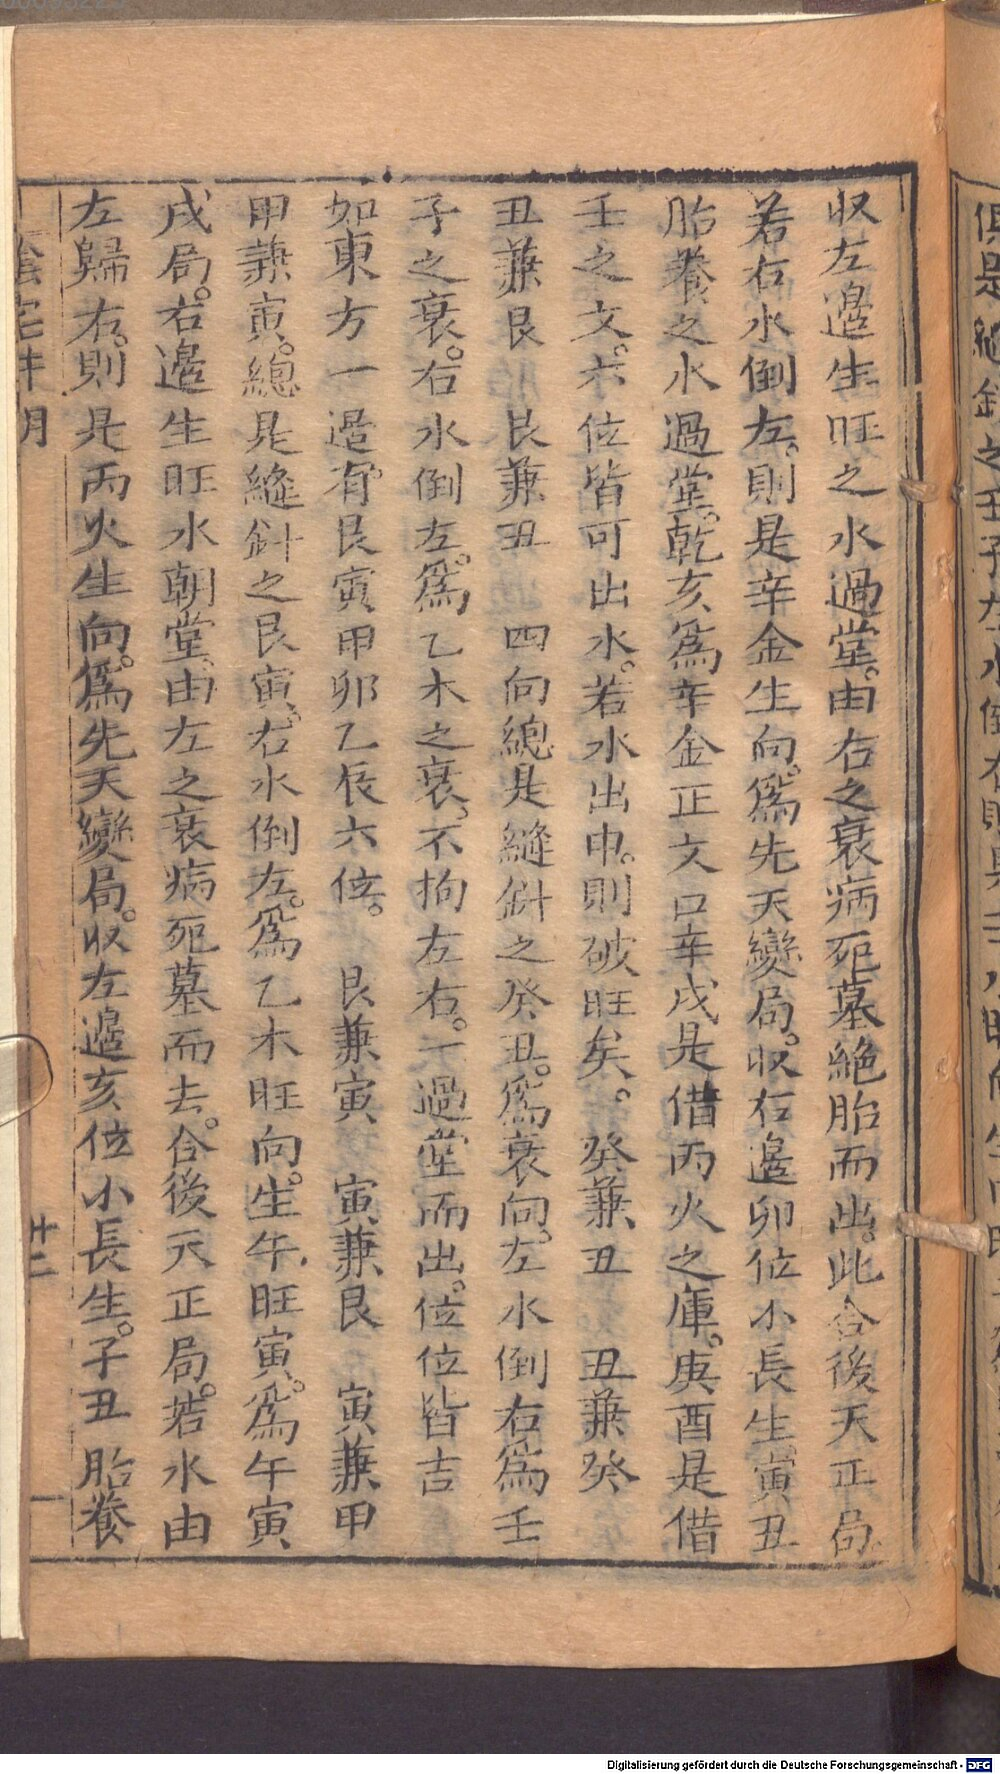 收左邉生旺之水過堂。由右之衰病死墓絶胎而出。此合後天正局。
若右水倒左。則是辛金生向。爲先天變局。收右邉卯位小長生。寅丑
胎養之水過堂。乾亥爲辛金正文口辛戌是借丙火之庫。庚酉是借
壬之文。六位皆可出水。若水出申。則破旺矣。 癸兼丑 丑兼癸
丑兼艮 艮兼丑 四向總是縫針之癸丑。爲衰向。左水倒右爲壬
子之衰。右水倒左。爲乙木之衰。不拘左右。一過堂而出。位位皆吉
如東方一邉。有艮寅甲卯乙辰六位。 艮兼寅 寅兼艮 寅兼甲
甲兼寅。總是縫針之艮寅。右水倒左。爲乙木旺向。生午旺寅。爲午寅
戌局。右邉生旺水朝堂。由左之衰病死墓而去。合後天正局。若水由
左歸右。則是丙火生向。爲先天變局。收左邉亥位小長生。子丑胎養
廿二
俱是縫針之壬子左水倒右則是
Digitalisierung gefördert durch die Deutsche Forschungsgemeinschaft - DFG